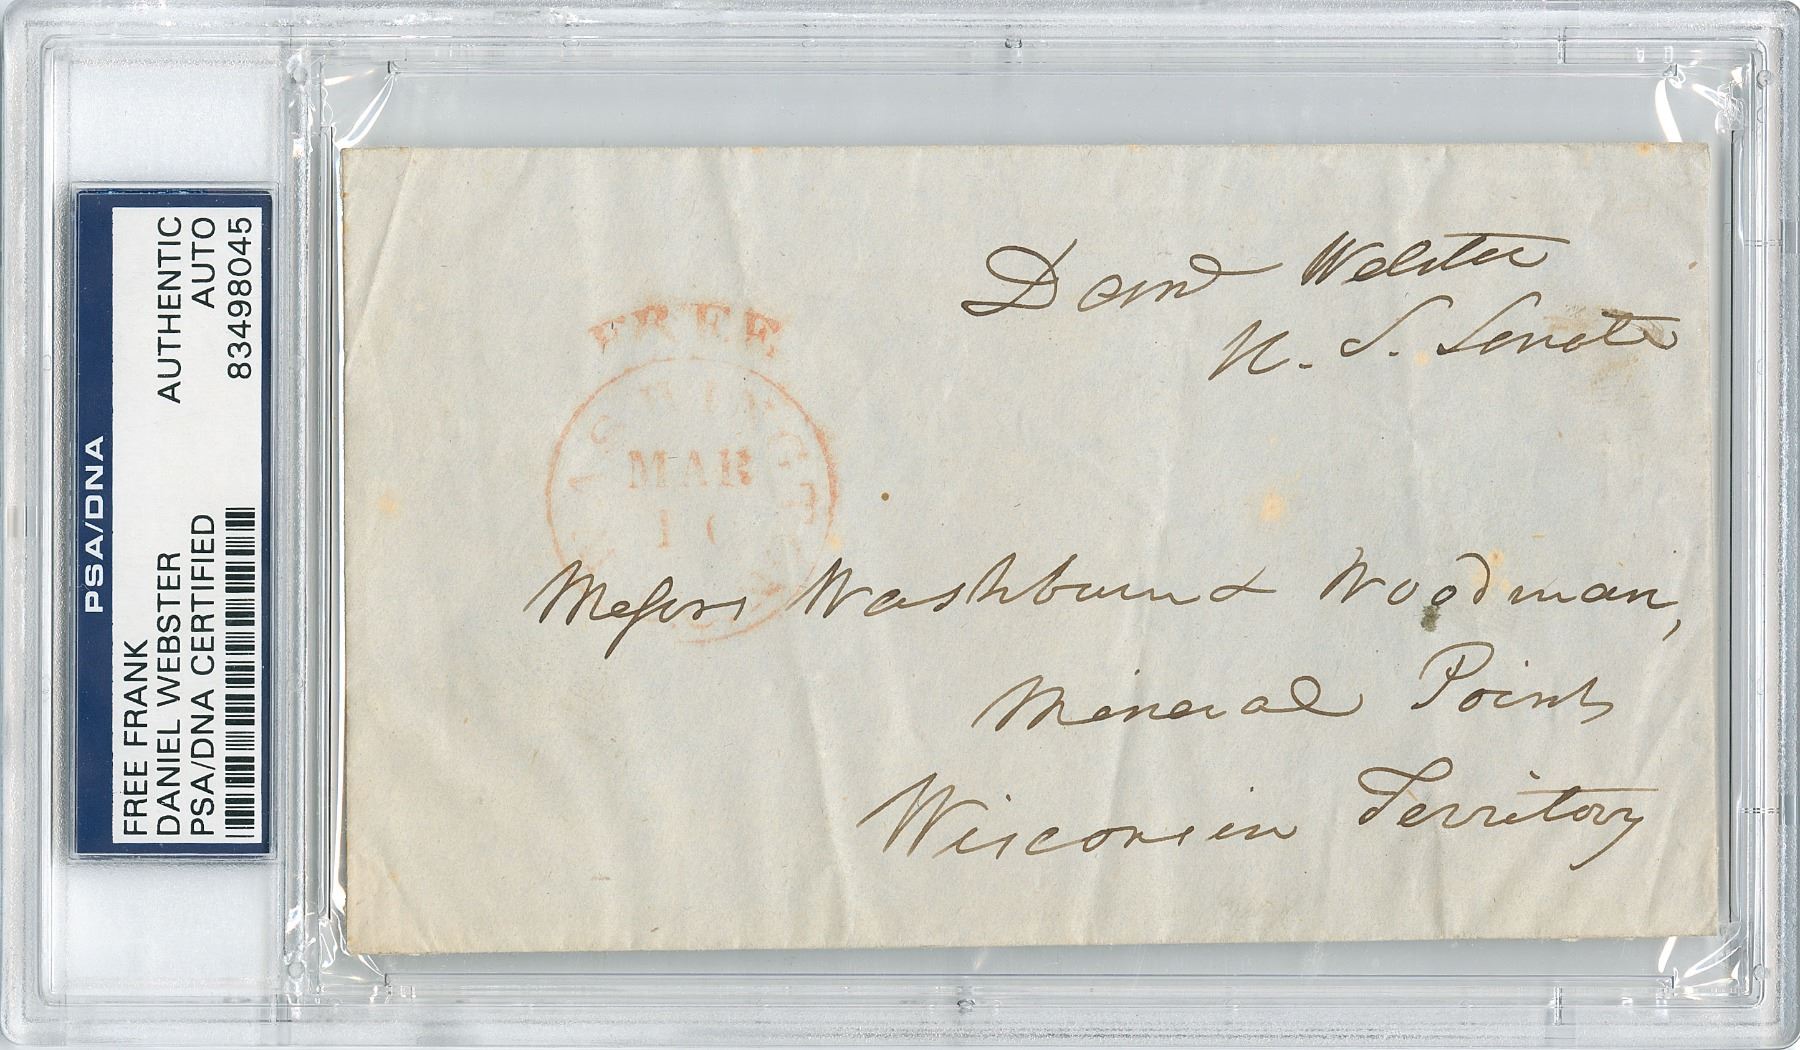 PSA/DNA
FREE FRANK
DANIEL WEBSTER
PSA/DNA CERTIFIED
AUTHENTIC
AUTO
83498045
Danl Webster
U. S. Senate
FREE
WASHINGTON
MAR
Messrs Washburn & Woodman,
Mineral Point
Wisconsin Territory